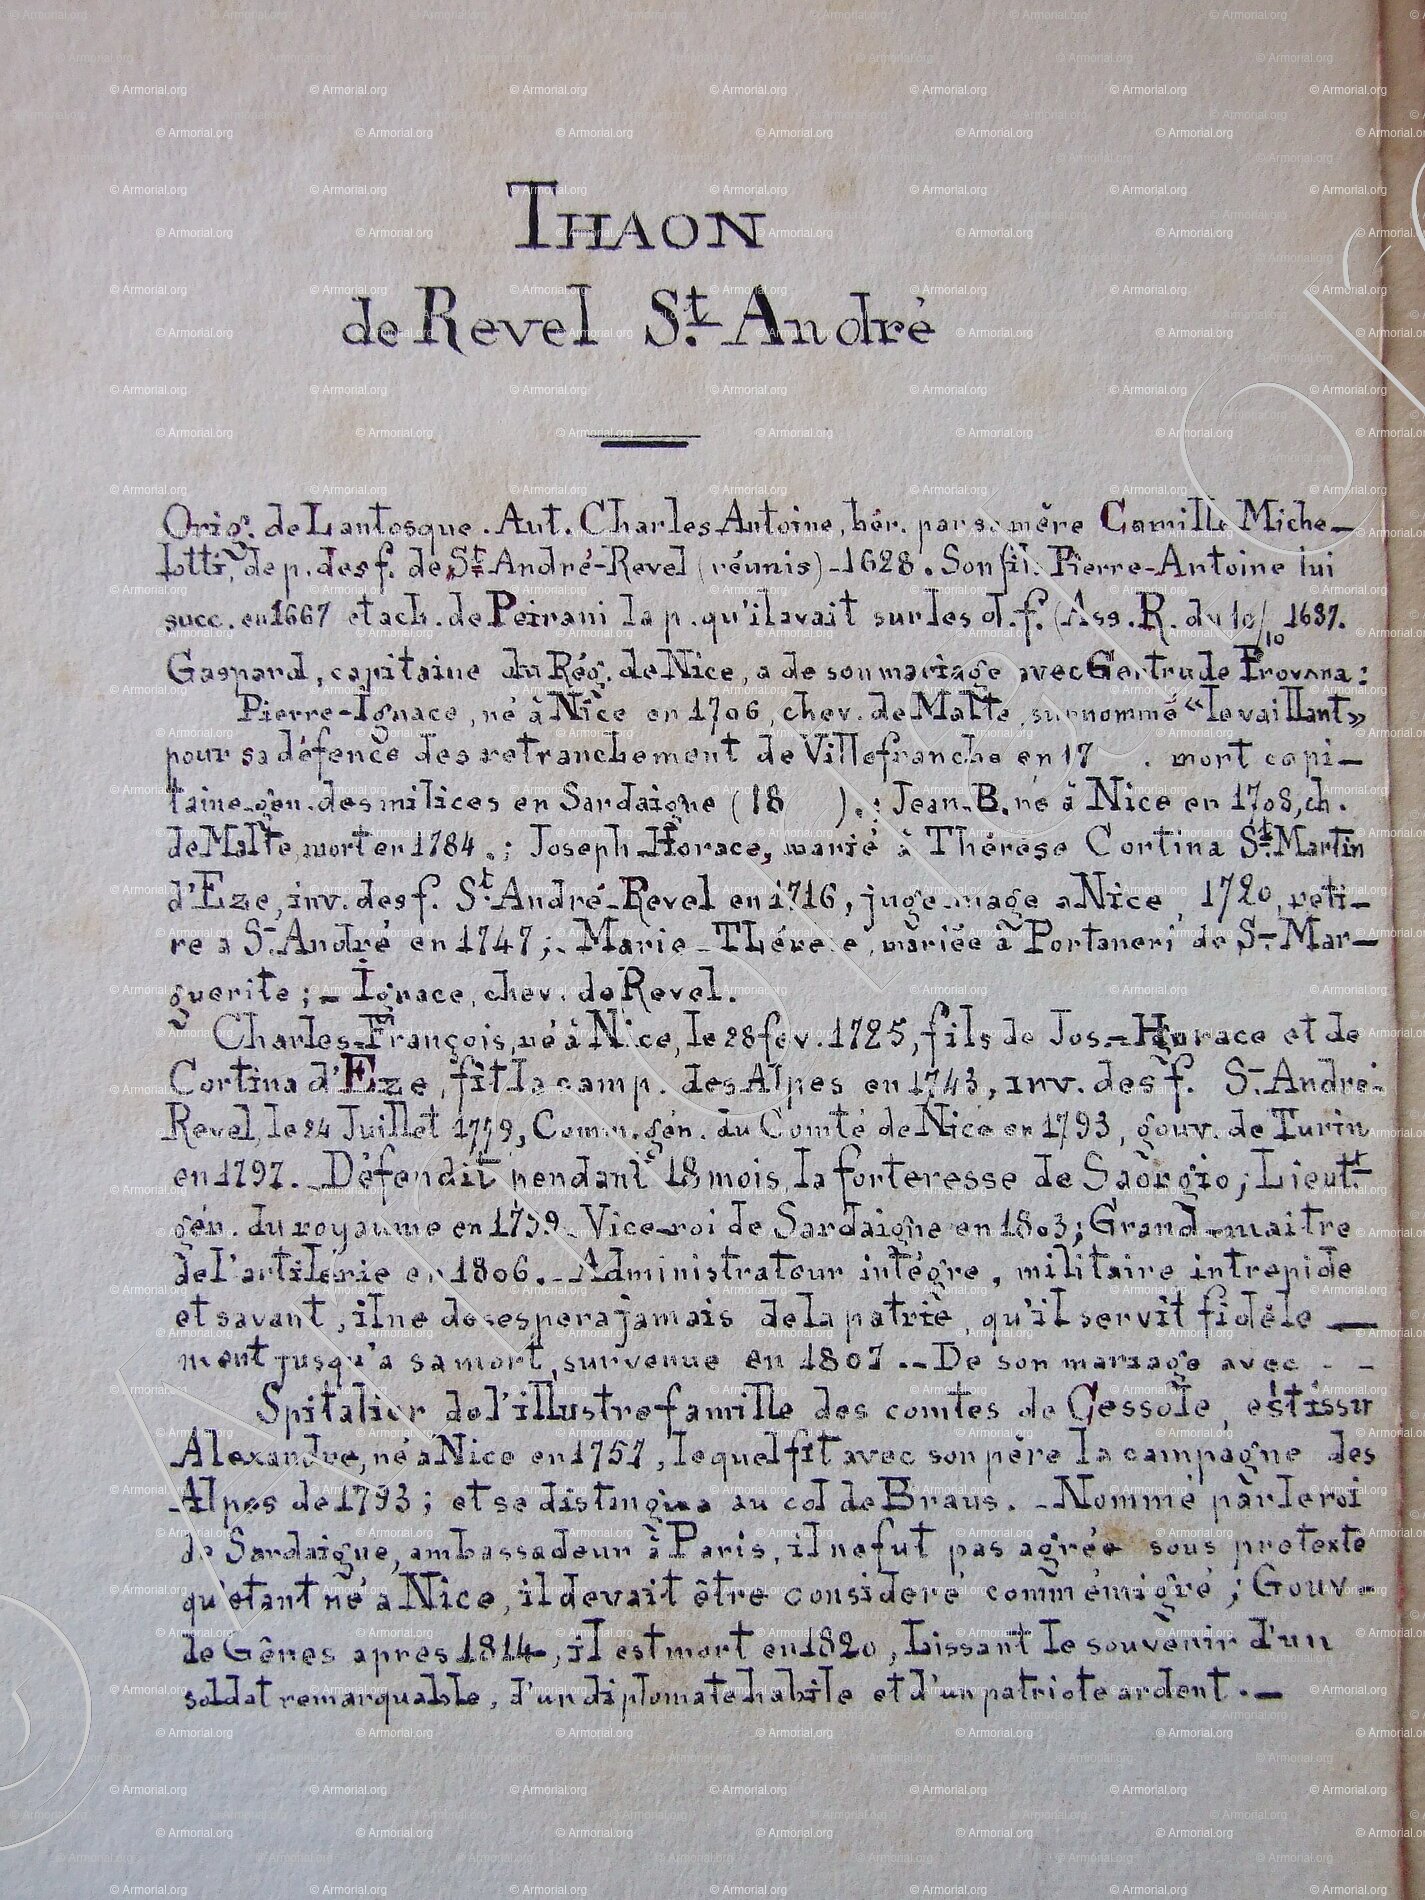 THAON
de Revel St. André
Orig. de Lantosque. Aut. Charles Antoine, hér. par sa mère Camille Miche-
lotti, de p. des f. de St André-Revel (réunis)-1628. Son fil. Pierre-Antoine lui
succ. en 1667 et ach. de Peirani la p. qu'il avait sur les d. f. (Ass. R. du 10/10 1687.
Gaspard, capitaine du Rég. de Nice, a de son mariage avec Gertrude Provana:
Pierre-Ignace, né à Nice en 1706, chev. de Malte, surnommé «le vaillant»
pour sa défence des retranchement de Villefranche en 17 . mort capi-
taine-gén. des milices en Sardaigne (18 ).; Jean-B. né à Nice en 1708, ch.
de Malte, mort en 1784.; Joseph-Horace, marié à Thérèse Cortina St. Martin
d'Eze, inv. des f. St. André-Revel en 1716, juge-mage a Nice, 1720, reti-
re a St. André en 1747;- Marie-Thérèse, mariée à Portaneri de St. Mar-
guerite;- Ignace, chev. de Revel.
Charles-François, né à Nice, le 28 fev. 1725, fils de Jos-Horace et de
Cortina d'Eze, fit la camp. des Alpes en 1743, inv. des f. St. André-
Revel, le 24 Juillet 1779, Comm. gén. du Comté de Nice en 1793, gouv. de Turin
en 1797.-Défendit pendant 18 mois la forteresse de Saorgio; Lieutt
gén. du royaume en 1799. Vice-roi de Sardaigne en 1803; Grand-maitre
de l'artilerie en 1806.-Administrateur intègre, militaire intrepide
et savant, il ne desespera jamais de la patrie, qu'il servit fidèle-
ment jusqu'a sa mort, survenue en 1807.-De son mariage avec - -
Spitalier de l'illustre famille des comtes de Cessole, est issu
Alexandre, né a Nice en 1757, lequel fit avec son père la campagne des
Alpes de 1793; et se distingua au col de Braus.-Nommé par le roi
de Sardaigne, ambassadeur à Paris, il ne fut pas agrée sous pretexte
qu'etant né a Nice, il devait être consideré comm émigré; Gouv.
de Gênes apres 1814, il est mort en 1820, lissant le souvenir d'un
soldat remarquable, d'un diplomate habile et d'un patriote ardent.-
© Armorial.org